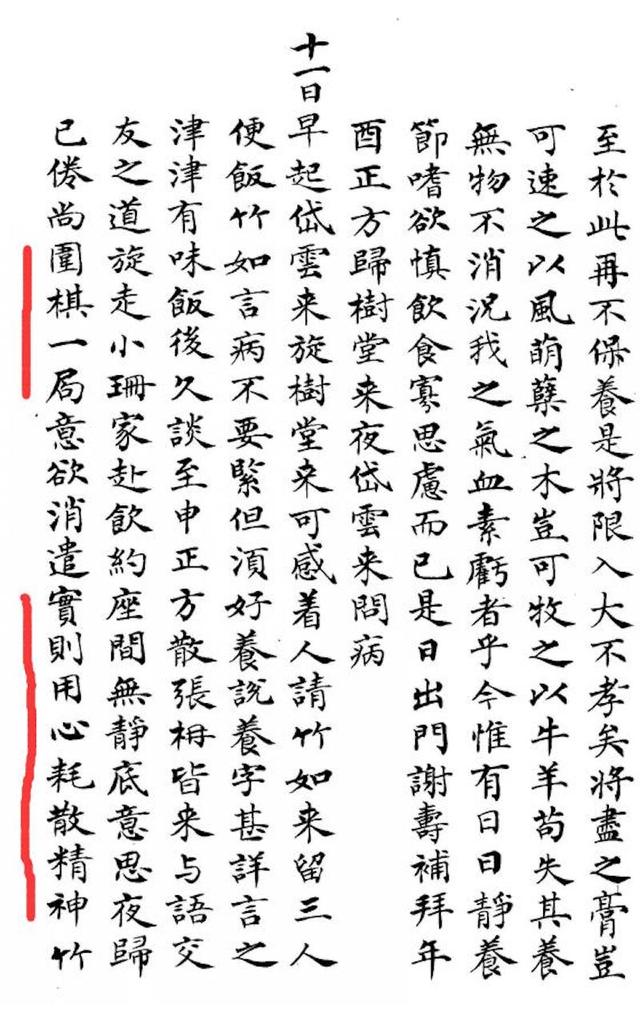 至於此再不保養是將限入大不孝矣將盡之膏豈
可速之以風萌孽之木豈可牧之以牛羊苟失其養
無物不消況我之氣血素虧者乎今惟有日日靜養
節嗜欲慎飲食寡思慮而已是日出門謝壽補拜年
酉正方歸樹堂来夜岱雲来問病
十一日早起岱雲来旋樹堂来可感着人請竹如来留三人
便飯竹如言病不要緊但須好養說養字甚詳言之
津津有味飯後久談至申正方散張枏皆来与語交
友之道旋走小珊家赴飲約座間無靜底意思夜歸
已倦尚圍棋一局意欲消遣實則用心耗散精神竹